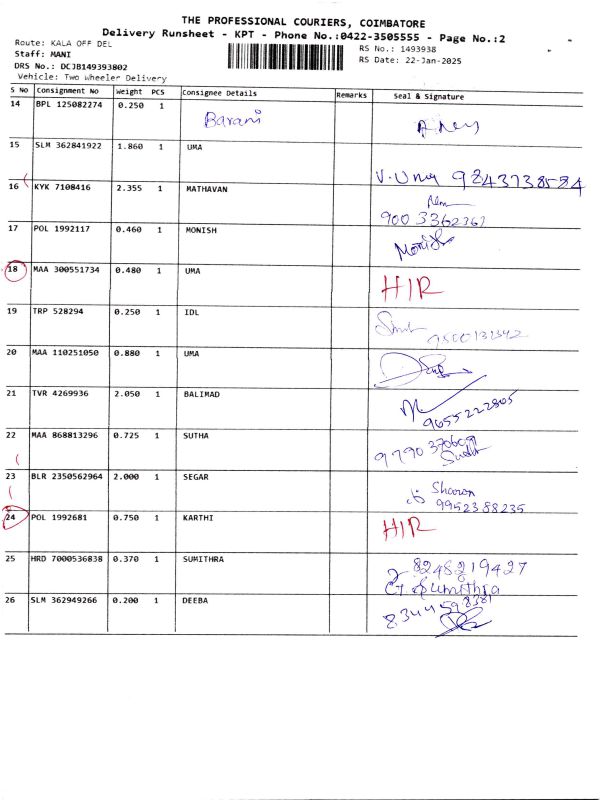 THE PROFESSIONAL COURIERS, COIMBATORE
Delivery Runsheet - KPT - Phone No.:0422-3505555 - Page No.:2
Route: KALA OFF DEL
Staff: MANI
DRS No.: DCJB149393802
Vehicle: Two Wheeler Delivery
RS No.: 1493938
RS Date: 22-Jan-2025
S No Consignment No Weight PCS Consignee Details Remarks Seal & Signature
14 BPL 125082274 0.250 1 Barani
15 SLM 362841922 1.860 1 UMA V. Uma 9843738584
16 KYK 7108416 2.355 1 MATHAVAN
17 POL 1992117 0.460 1 MONISH Monish
18 MAA 300551734 0.480 1 UMA HIR
19 TRP 528294 0.250 1 IDL
20 MAA 110251050 0.880 1 UMA
21 TVR 4269936 2.050 1 BALIMAD 9655222805
22 MAA 868813296 0.725 1 SUTHA
23 BLR 2350562964 2.000 1 SEGAR Sharon
9952388235
24 POL 1992681 0.750 1 KARTHI HIR
25 HRD 7000536838 0.370 1 SUMITHRA 8248219427
Sumithra
26 SLM 362949266 0.200 1 DEEBA 8344598381